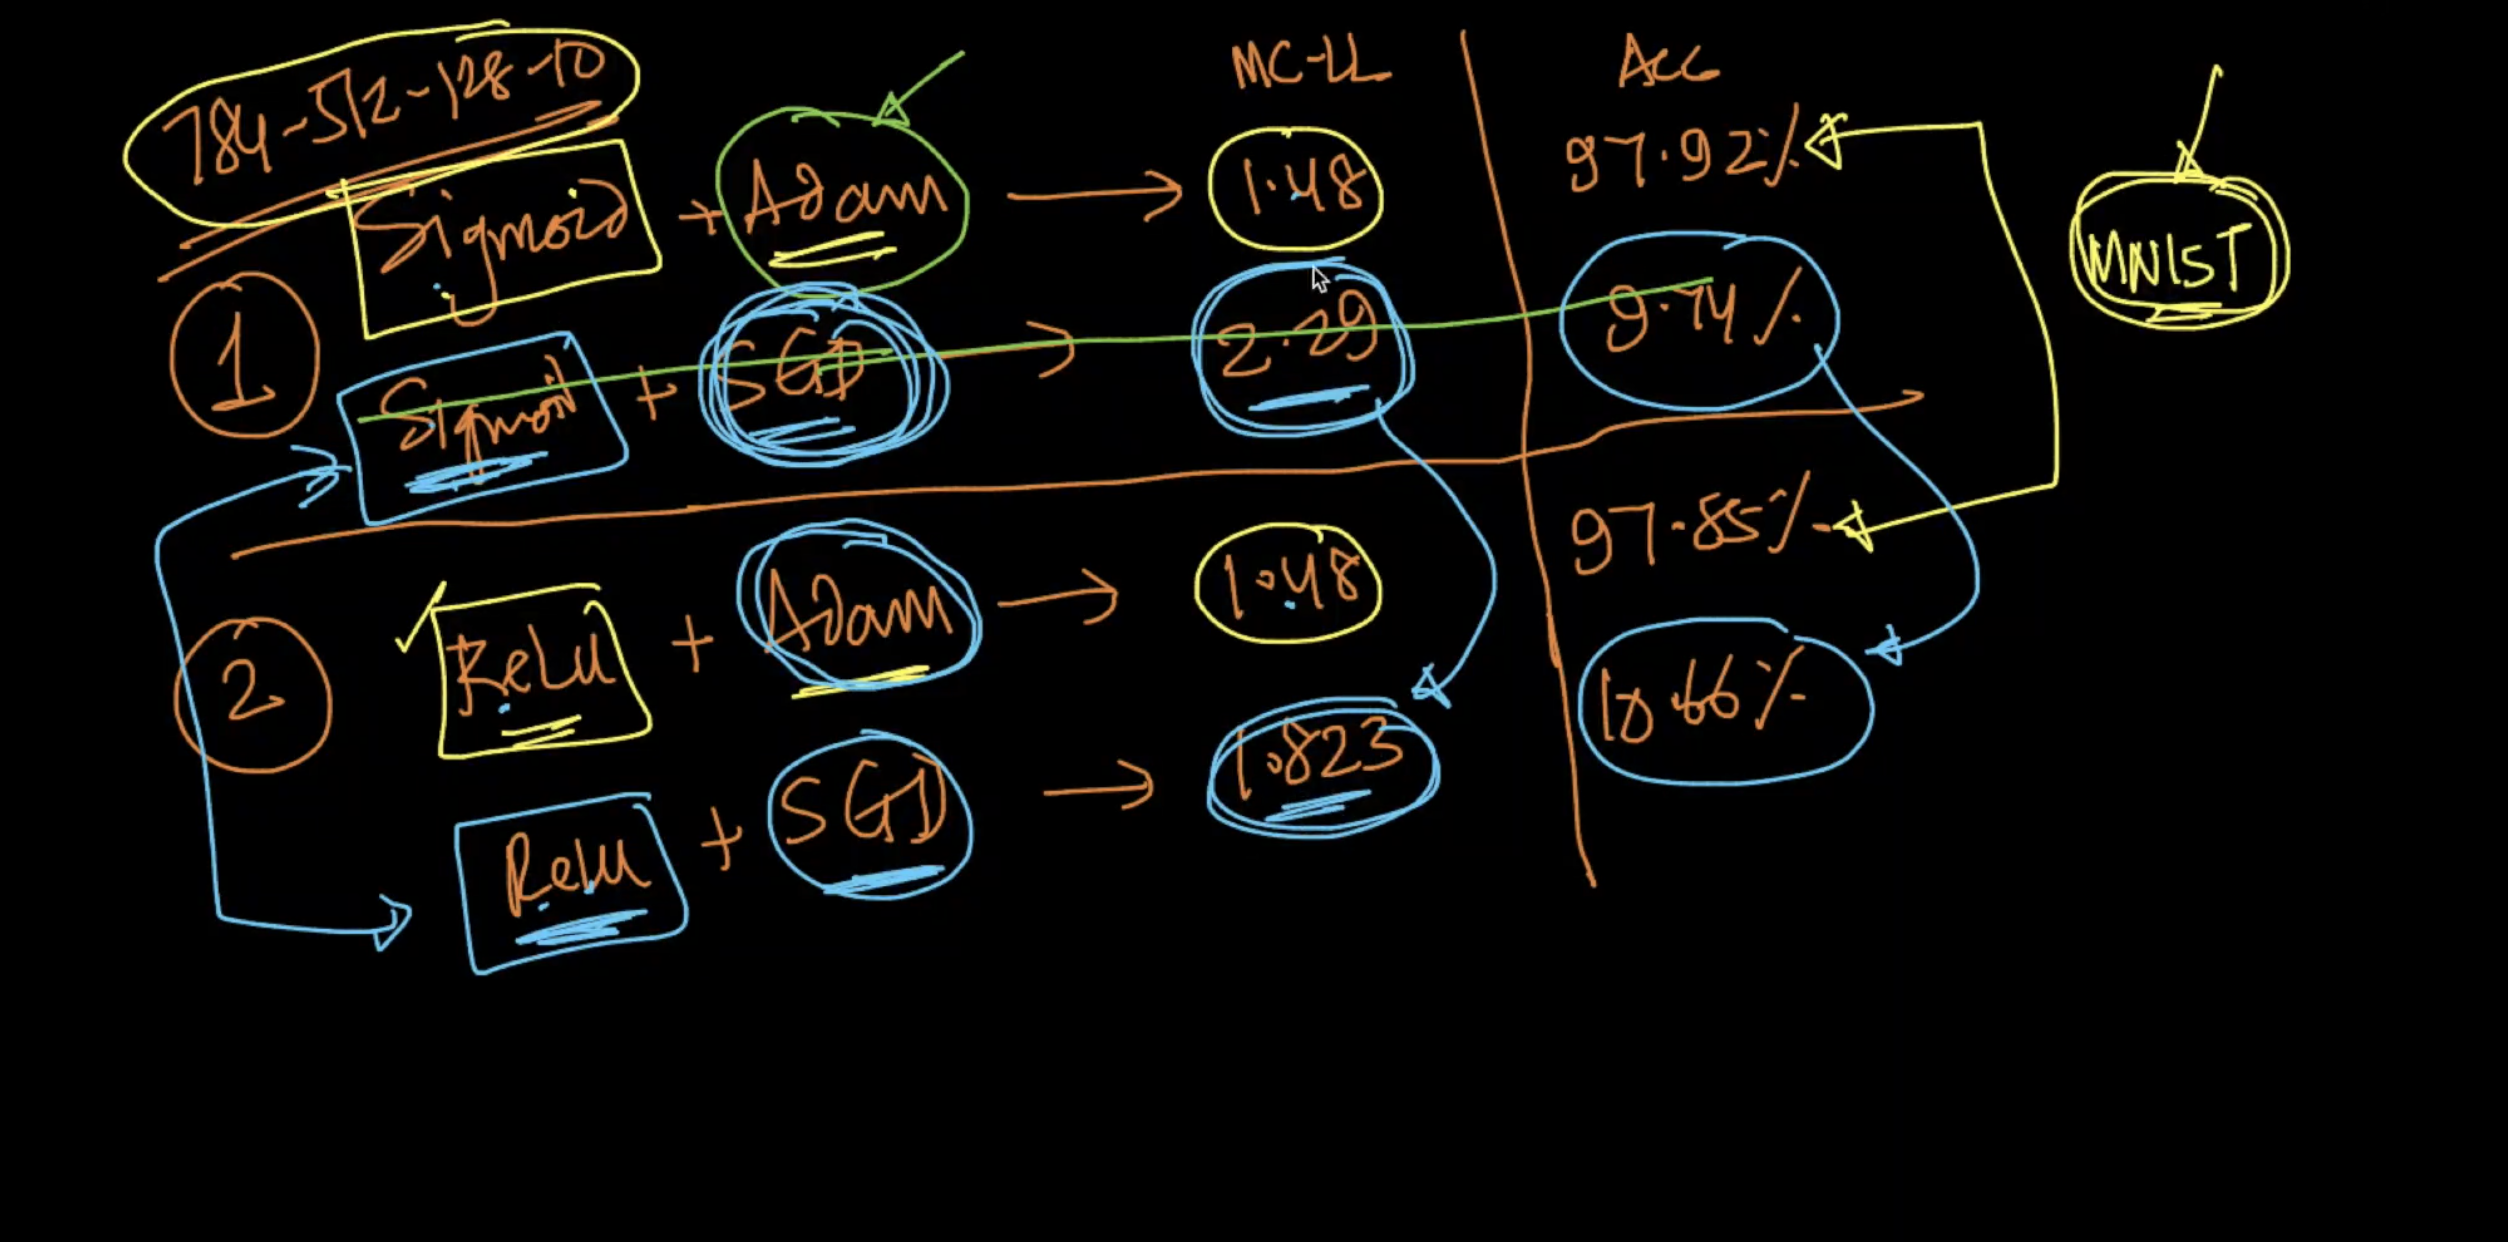 784-512-128-10
MC-LL
Acc
1
Sigmoid + Adam → 1.48 97.92%
Sigmoid + SGD → 2.29 9.74%
2
ReLu + Adam → 1.48 97.85%
Relu + SGD → 1.823 10.66%
MNIST